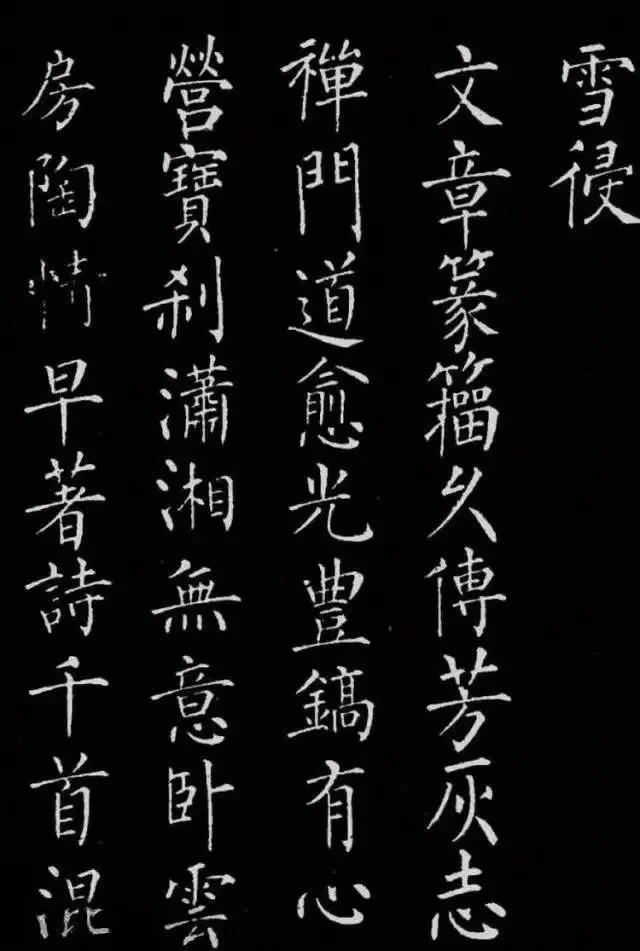 雪侵
文章篆籀久傳芳灰志
禪門道愈光豊鎬有心
營寶刹瀟湘無意卧雲
房陶情早著詩千首混